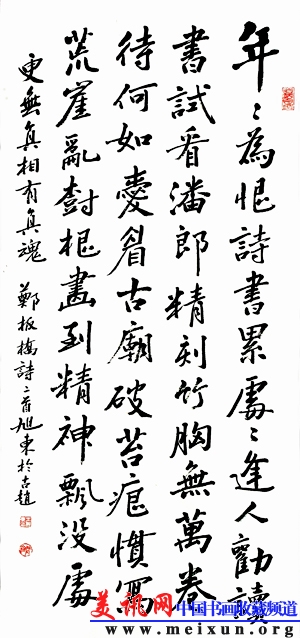 年〻為恨詩書累處〻逢人勸讀
書試看潘郎精刻竹胸無萬卷
待何如愛看古廟破苔痕慣寫
荒崖亂樹根畫到精神飄没處
更無真相有真魂 鄭板橋詩二首旭東於古趙
美讯网 中国书画收藏频道
www.meixun.org